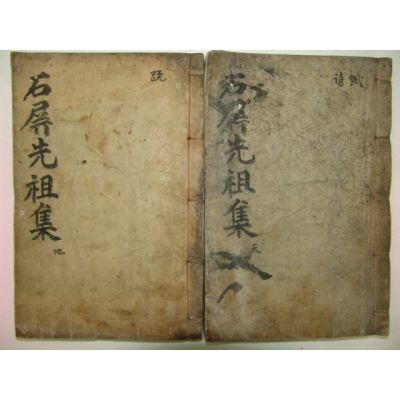 疏
石屛先祖集
地
賦詩
石屛先祖集
天